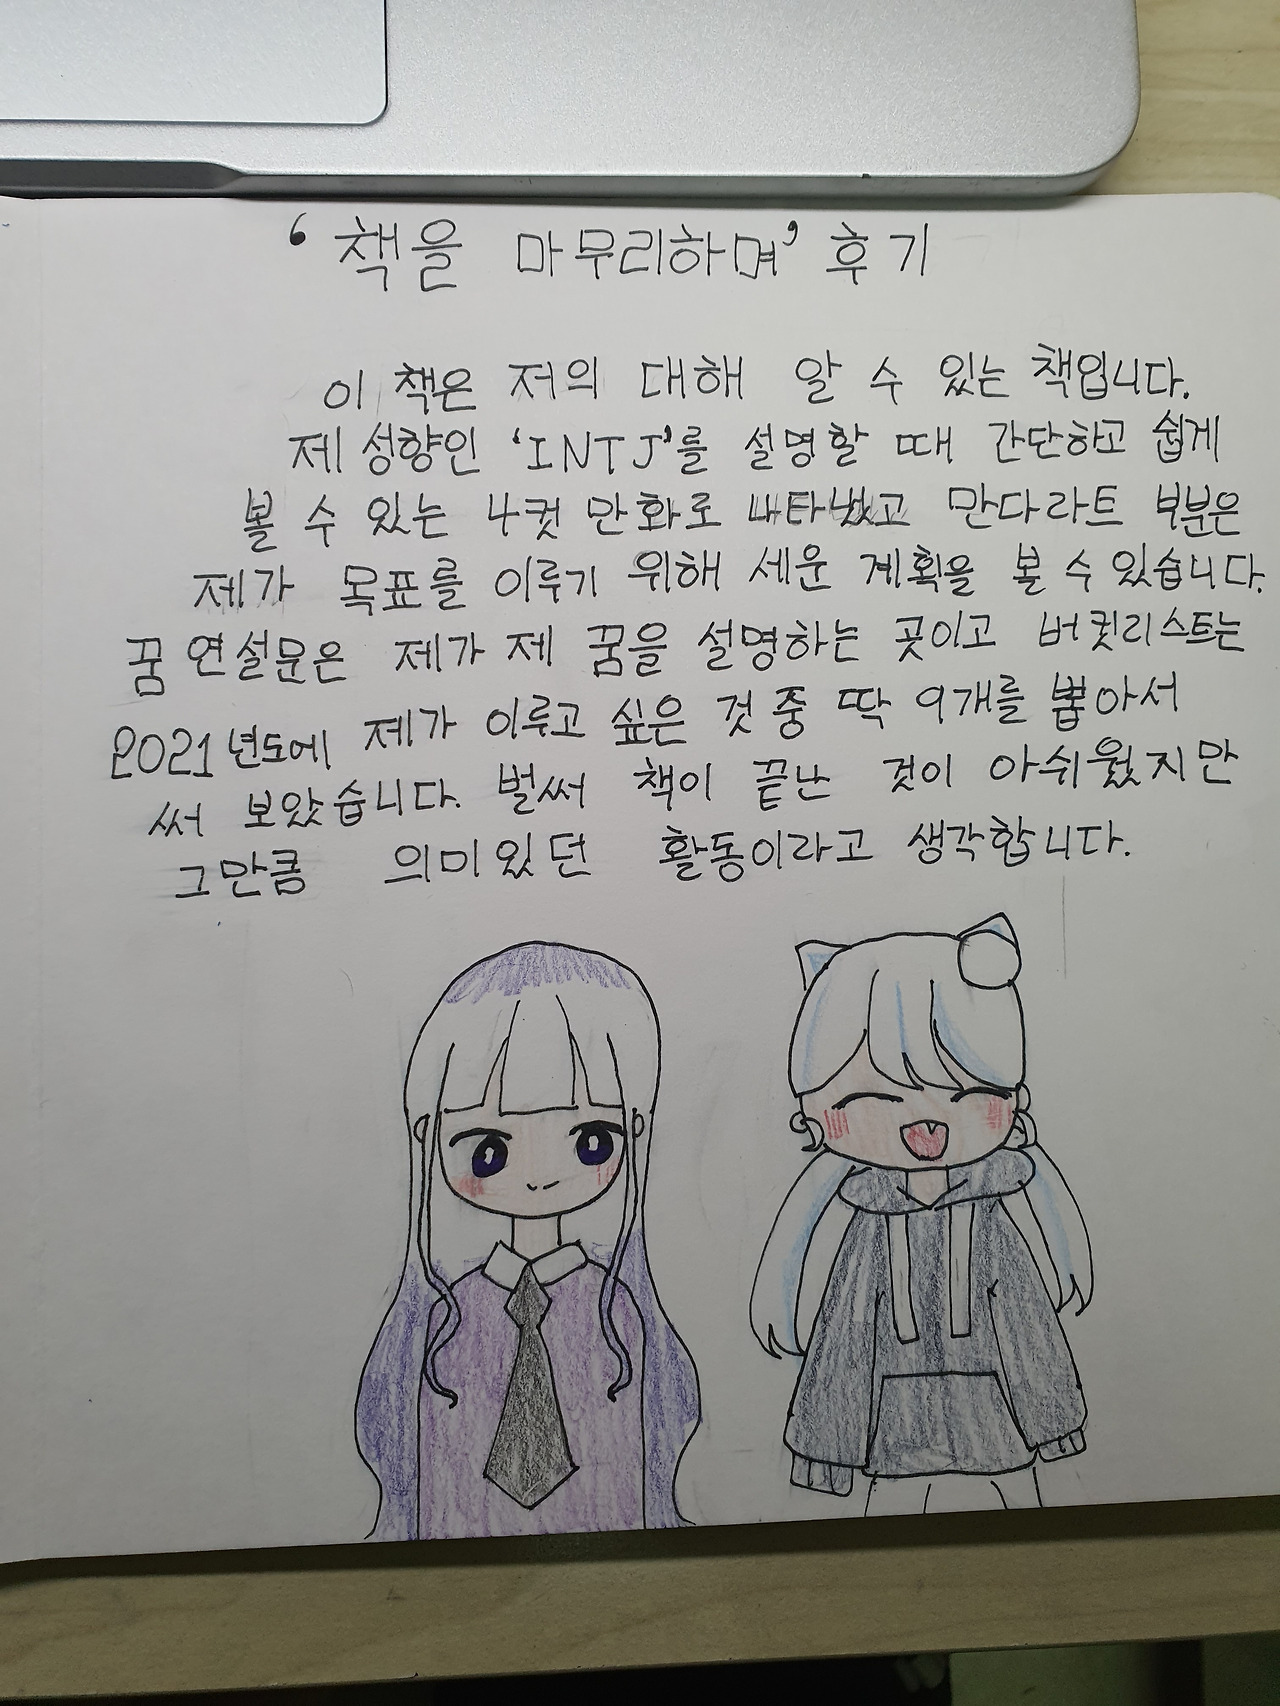 ‘책을 마무리하며’ 후기
이 책은 저의 대해 알 수 있는 책입니다.
제 성향인 ‘INTJ’를 설명할 때 간단하고 쉽게
볼 수 있는 4컷 만화로 나타냈고 만다라트 부분은
제가 목표를 이루기 위해 세운 계획을 볼 수 있습니다.
꿈 연설문은 제가 제 꿈을 설명하는 곳이고 버킷리스트는
2021년도에 제가 이루고 싶은 것 중 딱 9개를 뽑아서
써 보았습니다. 벌써 책이 끝난 것이 아쉬웠지만
그만큼 의미있던 활동이라고 생각합니다.